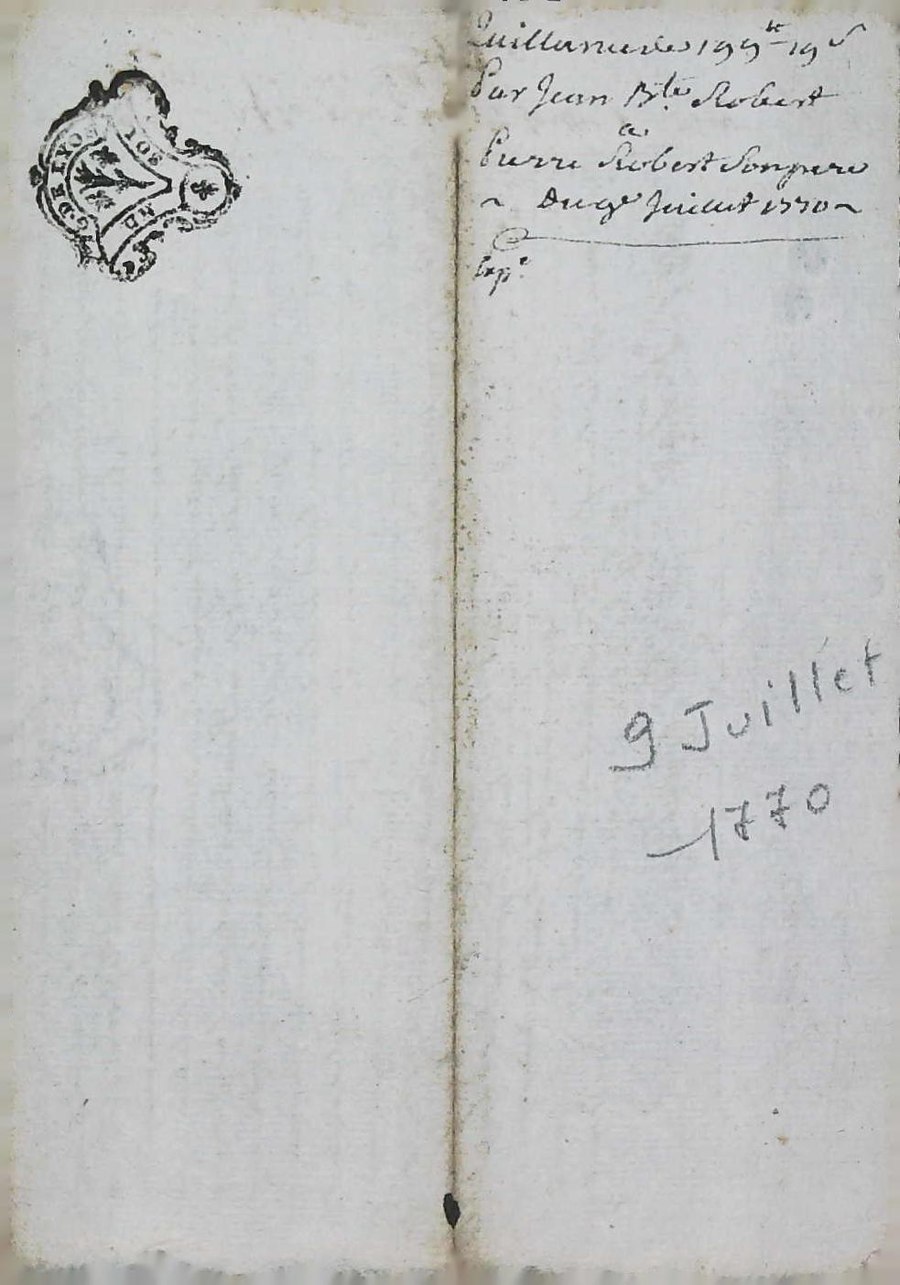 Quittance de 199tt 19s
Par Jean Bte Robert
a
Pierre Robert Son pere
~ Du 9e Juillet 1770 ~
Expe
9 Juillet
1770